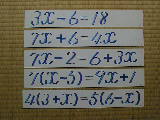 3x-6-18
7x+6-4x
7x-2-6+3x
7(x-3)=9x+1
4(3+x)=5(6-x)